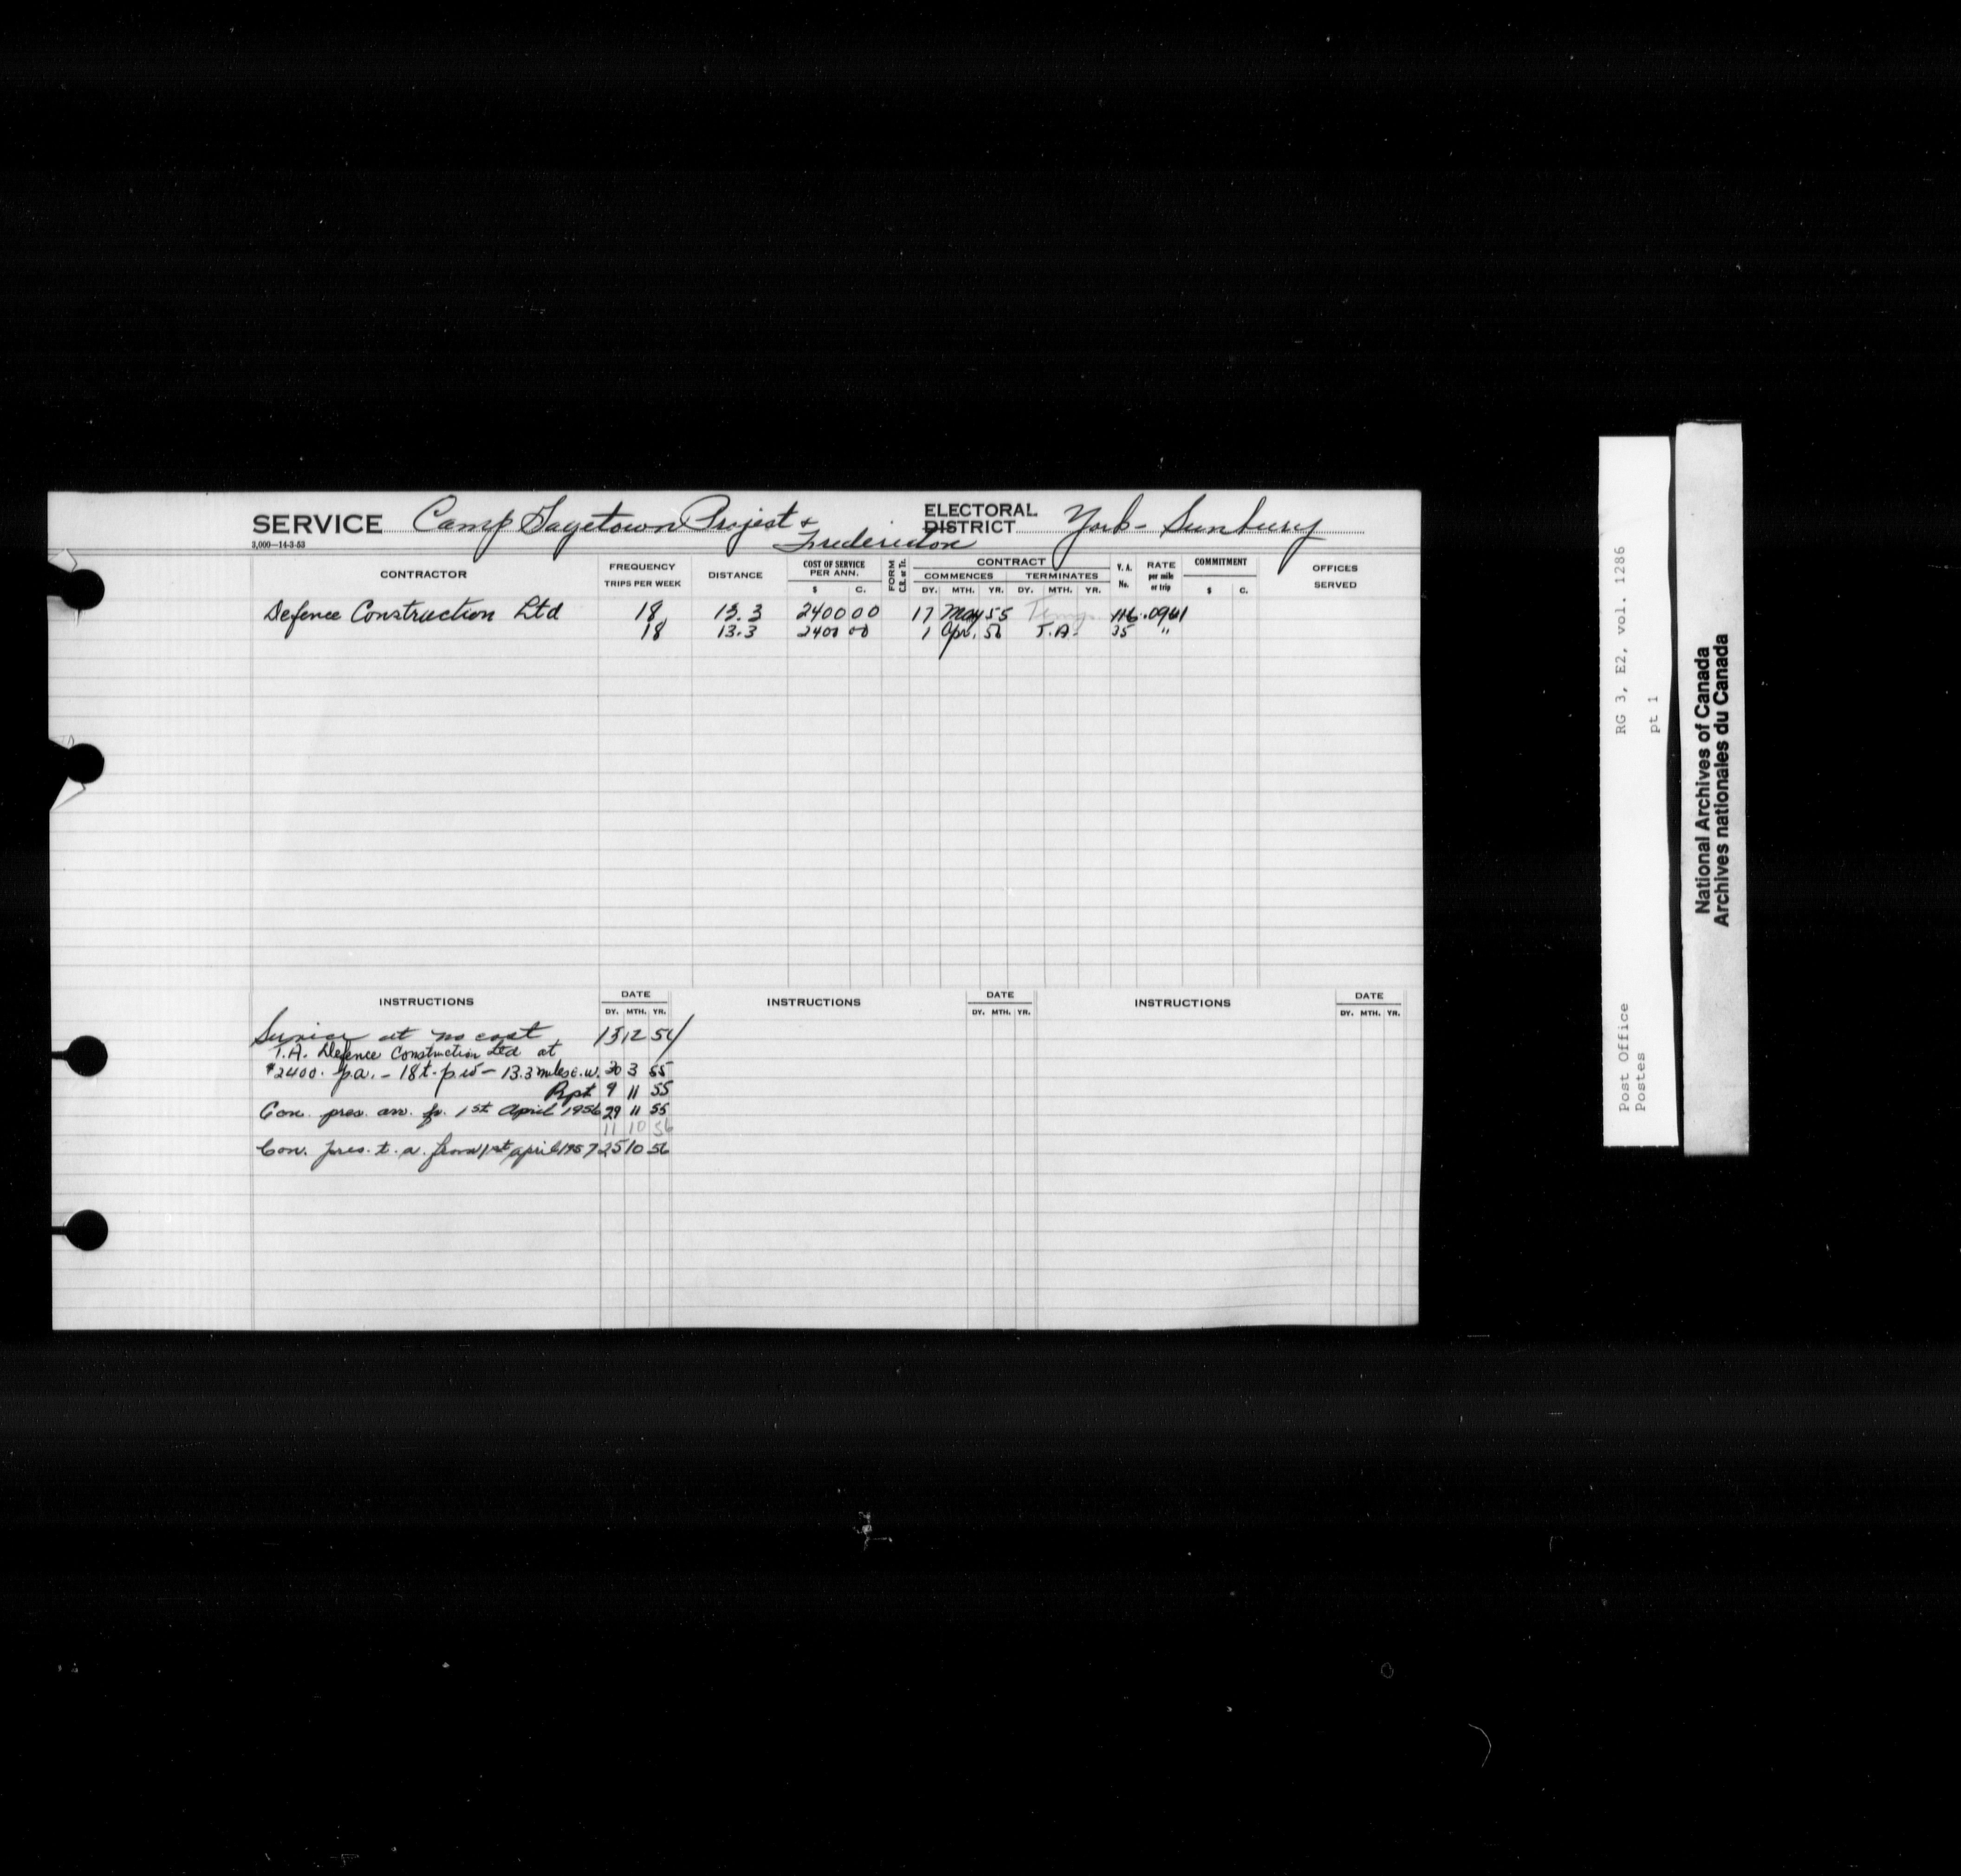 SERVICE Camp Gagetown Project &
Fredericton
ELECTORAL
DISTRICT York-Sunbury
3,000—14-3-53
CONTRACTOR FREQUENCY TRIPS PER WEEK DISTANCE COST OF SERVICE PER ANN. $ C. FORM C.R. or Tr. CONTRACT COMMENCES DY. MTH. YR. TERMINATES DY. MTH. YR. V. A. No. RATE per mile or trip COMMITMENT $ C. OFFICES SERVED
Defence Construction Ltd 18 13.3 2400 00 17 May 55 Temp. 116 .0961
18 13.3 2400 00 1 Apr. 56 T.A. 35 "
INSTRUCTIONS DATE DY. MTH. YR. INSTRUCTIONS DATE DY. MTH. YR. INSTRUCTIONS DATE DY. MTH. YR.
Service at no cost 13 12 54
T.A. Defence Construction Ltd at
$2400. p.a. - 18 t.p.w - 13.3 miles e.w. 30 3 55
Rpt 9 11 55
Con. pres. arr. fr. 1st April 1956 29 11 55
11 10 56
Con. pres. t. a. from 1st April 1957 25 10 56
RG 3, E2, vol. 1286
pt 1
Post Office
Postes
National Archives of Canada
Archives nationales du Canada